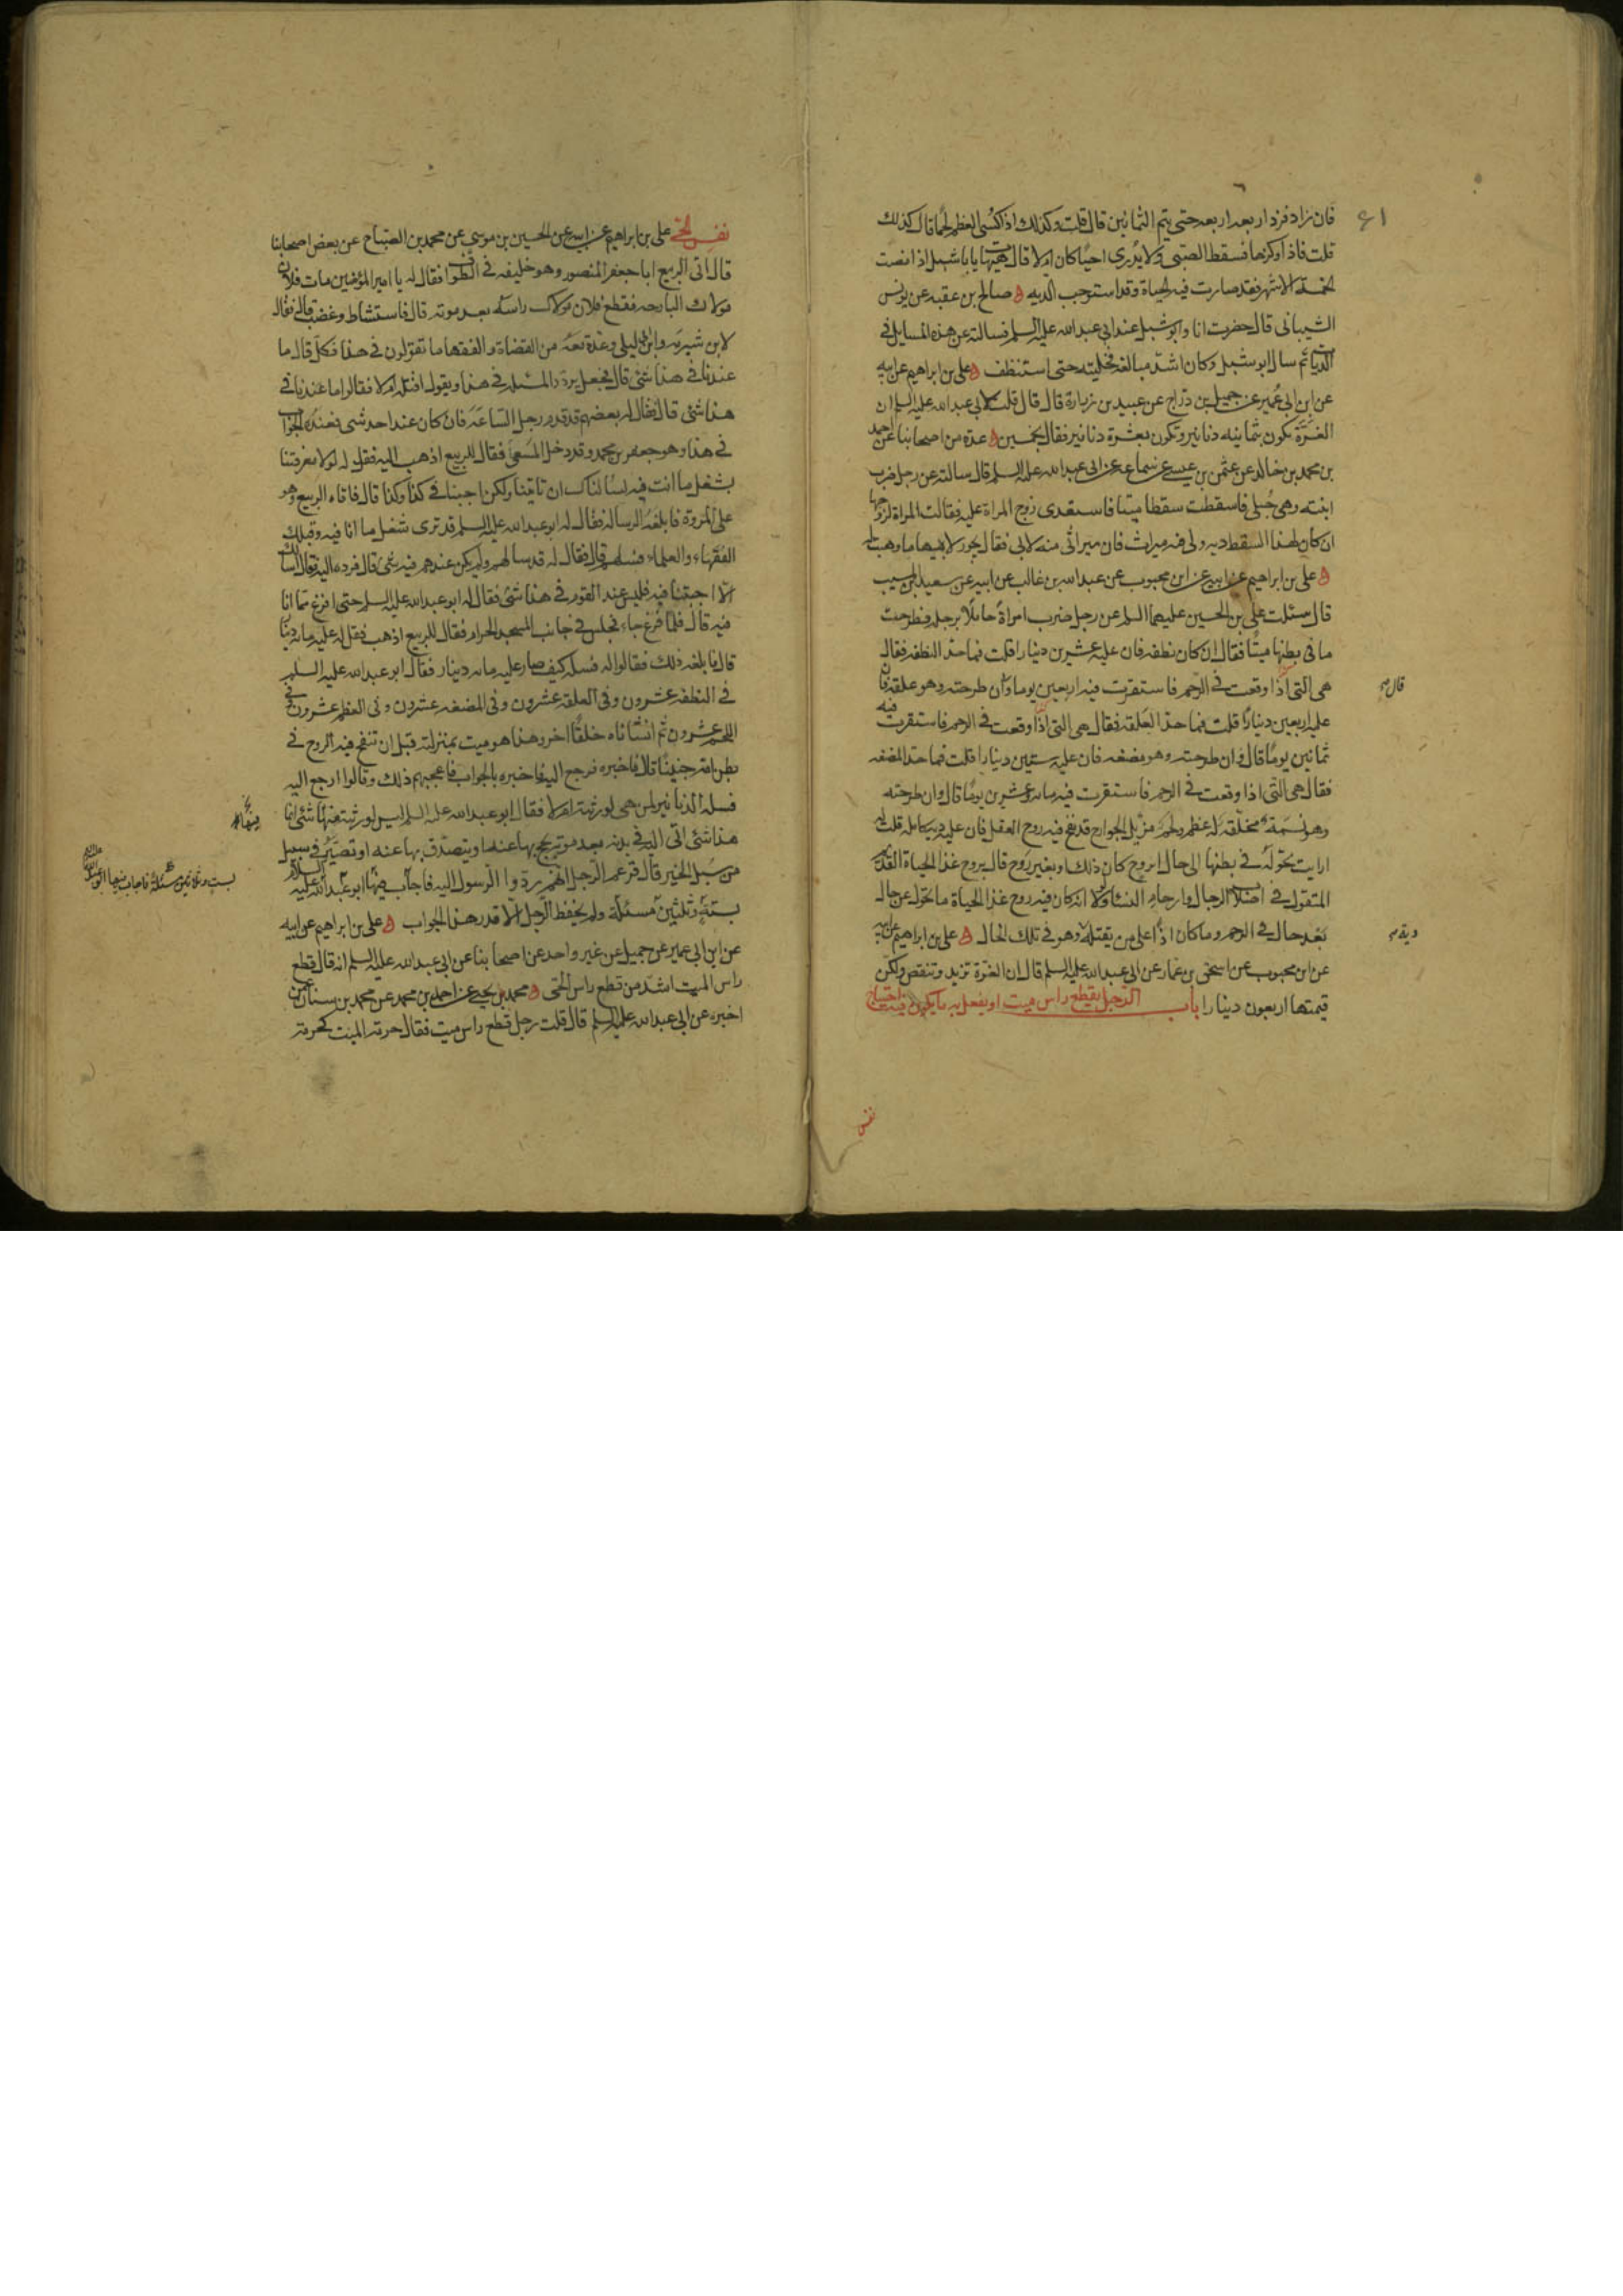 ٦١
فان زاد فزد اربعه اربعه حتى يتم الثمانين قال قلت وكذلك اذ اكتسى العظم لحما قال كذلك
قلت فاذا وكزها فسقط الصبى ولا يدرى احيا كان ام لا قال هيهات يا با شبل اذا مضت
الخمسة الاشهر فقد صارت فيه الحياة وقد استوجب الديه صالح بن عقبه عن يونس
الشيبانى قال حضرت انا وابو شبل عند ابى عبد الله عليه السلم فسالته عن هذه المسايل فى
الديات ثم سال ابو شبل وكان اشد مبالغه فخليته حتى استنظف على بن ابراهيم عن ابيه
عن ابن ابى عمير عن جميل بن دراج عن عبيد بن زرارة قال قلت لابى عبد الله عليه السلم ان
الغرة تكون بثمانيه دنانير وتكون بعشرة دنانير فقال بخمسين عدة من اصحابنا عن احمد
بن محمد بن خالد عن عثمن بن عيسى عن سماعه عن ابى عبد الله عليه السلم قال سالته عن رجل ضرب
ابنته وهى حبلى فاسقطت سقطا ميتا فاستعدى زوج المراة عليه فقالت المراة لزوجها
ان كان لهذا السقط ديه ولى فيه ميراث فان ميراثى منه لابى فقال يجوز لابيها ما وهبت له
على بن ابراهيم عن ابيه عن ابن محبوب عن عبد الله بن غالب عن ابيه عن سعيد بن المسيب
قال سئلت على بن الحسين عليهما السلم عن رجل ضرب امراة حاملا برجله فطرحت
ما فى بطنها ميتا فقال ان كان نطفه فان عليه عشرين دينارا قلت فما حد النطفه فقال
هى التى اذا وقعت فى الرحم فاستقرت فيه اربعين يوما وان طرحته وهو علقه فان
قال
عليه اربعين دينارا قلت فما حد العلقه فقال هى التى اذا وقعت فى الرحم فاستقرت فيه
ثمانين يوما قال وان طرحته وهو مضغه فان عليه ستين دينارا قلت فما حد المضغه
فقال هى التى اذا وقعت فى الرحم فاستقرت فيه مايه وعشرين يوما قال وان طرحته
وهو نسمة مخلقة له عظم ولحم مزيل الجوارح قد نفخ فيه روح العقل فان عليه ديه كامله قلت له
ارايت تحوله فى بطنها الى حال ابروح كان ذلك او بغير روح قال بروح غذا الحياة القديم
المنقول فى اصلاب الرجال وارحام النساء ولولا انه كان فيه روح غذا الحياة ما تحول عن حال
بعد حال فى الرحم وما كان اذا على من يقتله وهو فى تلك الحال على بن ابراهيم عن ابيه
ديه
عن ابن محبوب عن اسحق بن عمار عن ابى عبد الله عليه السلم قال ان الغرة تزيد وتنقص ولكن
قيمتها اربعون دينارا باب الرجل يقطع راس ميت او يفعل به ما يكون فيه اجتياح
نفس
نفس الحى على بن ابراهيم عن ابيه عن الحسين بن موسى عن محمد بن الصباح عن بعض اصحابنا
قال اتى الربيع ابا جعفر المنصور وهو خليفه فى الطواف فقال له يا امير المؤمنين مات فلان
مولاك البارحه فقطع فلان مولاك راسه بعد موته قال فاستشاط وغضب قال فقال
لابن شبرمه وابن ابى ليلى وعدة معه من القضاة والفقها ما تقولون فى هذا فكل قال ما
عندنا فى هذا شئ قال فجعل يردد المسئله فى هذا ويقول اقتله ام لا فقالوا ما عندنا فى
هذا شئ قال فقال له بعضهم قد قدم رجل الساعة فان كان عند احد شى فعنده الجواب
فى هذا وهو جعفر بن محمد وقد دخل المسعى فقال للربيع اذهب اليه فقل له لولا معرفتنا
بشغل ما انت فيه لسالناك ان تاتينا ولكن اجبنا فى كذا وكذا قال فاتاه الربيع وهو
على المروة فابلغه الرساله فقال له ابو عبد الله عليه السلم قد ترى شغل ما انا فيه وقبلك
الفقهاء والعلماء فسلهم قال فقال له قد سالهم ولم يكن عندهم فيه شئ قال فرده اليه فقال اسالك
الا اجبتنا فيه فليس عند القوم فى هذا شئ فقال له ابو عبد الله عليه السلم حتى افرغ مما انا
فيه قال فلما فرغ جاء فجلس فى جانب المسجد الحرام فقال للربيع اذهب فقل له عليه مايه دينار
قال فابلغه ذلك فقالوا له فسله كيف صار عليه مايه دينار فقال ابو عبد الله عليه السلم
فى النطفه عشرون وفى العلقه عشرون وفى المضغه عشرون وفى العظم عشرون وفى
اللحم عشرون ثم انشاناه خلقا اخر وهذا هو ميت بمنزلته قبل ان تنفخ فيه الروح فى
بطن امه جنينا قال فرجع اليه فاخبره بالجواب فاعجبهم ذلك وقالوا ارجع اليه
فسله الدنانير لمن هى لورثته ام لا فقال ابو عبد الله عليه السلم ليس لورثته فيها شئ انما
هذا شئ اتى اليه فى بدنه بعد موته يحج بها عنه او يتصدق بها عنه او تصير فى سبيل
من سبل الخير قال فزعم الرجل انهم ردوا الرسول اليه فاجاب فيها ابو عبد الله عليه السلام
بستة وثلثين مسئلة ولم يحفظ الرجل الا قدر هذا الجواب على بن ابراهيم عن ابيه
عن ابن ابى عمير عن جميل عن غير واحد عن اصحابنا عن ابى عبد الله عليه السلم انه قال قطع
راس الميت اشد من قطع راس الحى محمد بن يحيى عن احمد بن محمد عن محمد بن سنان عمن
اخبره عن ابى عبد الله عليه السلم قال قلت رجل قطع راس ميت فقال حرمة الميت كحرمة